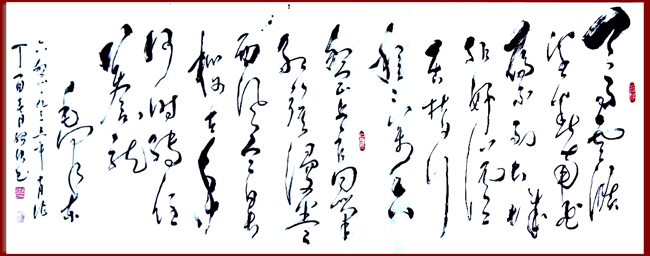 天高云淡
望断南飞
雁不到长城
非好汉
屈指行
程二万六
盘山上高峰
红旗漫卷
西风今日
长缨在手
何时缚住
苍龙
毛泽东
六盘山一九三五年十月作
丁酉春月